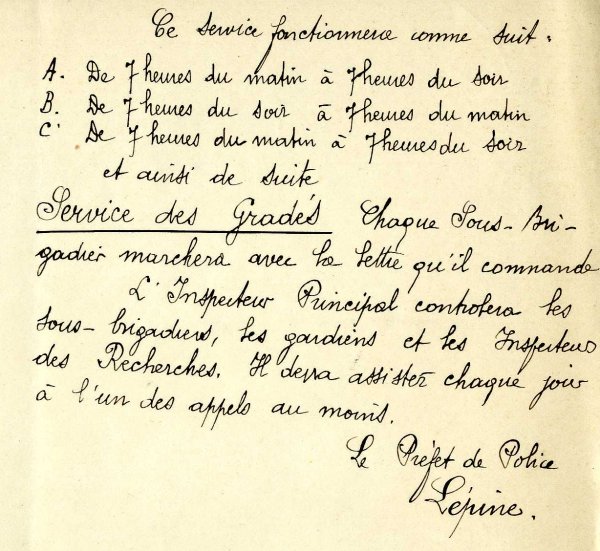 Ce service fonctionnera comme suit.
A. De 7 heures du matin à 7 heures du soir
B. De 7 heures du soir à 7 heures du matin
C. De 7 heures du matin à 7 heures du soir
et ainsi de suite
Service des Gradés Chaque Sous-Bri-
gadier marchera avec la lettre qu'il commande
L'Inspecteur Principal controlera les
sous-brigadiers, les gardiens et les Inspecteurs
des Recherches. Il devra assister chaque jour
à l'un des appels au moins.
Le Préfet de Police
Lépine.